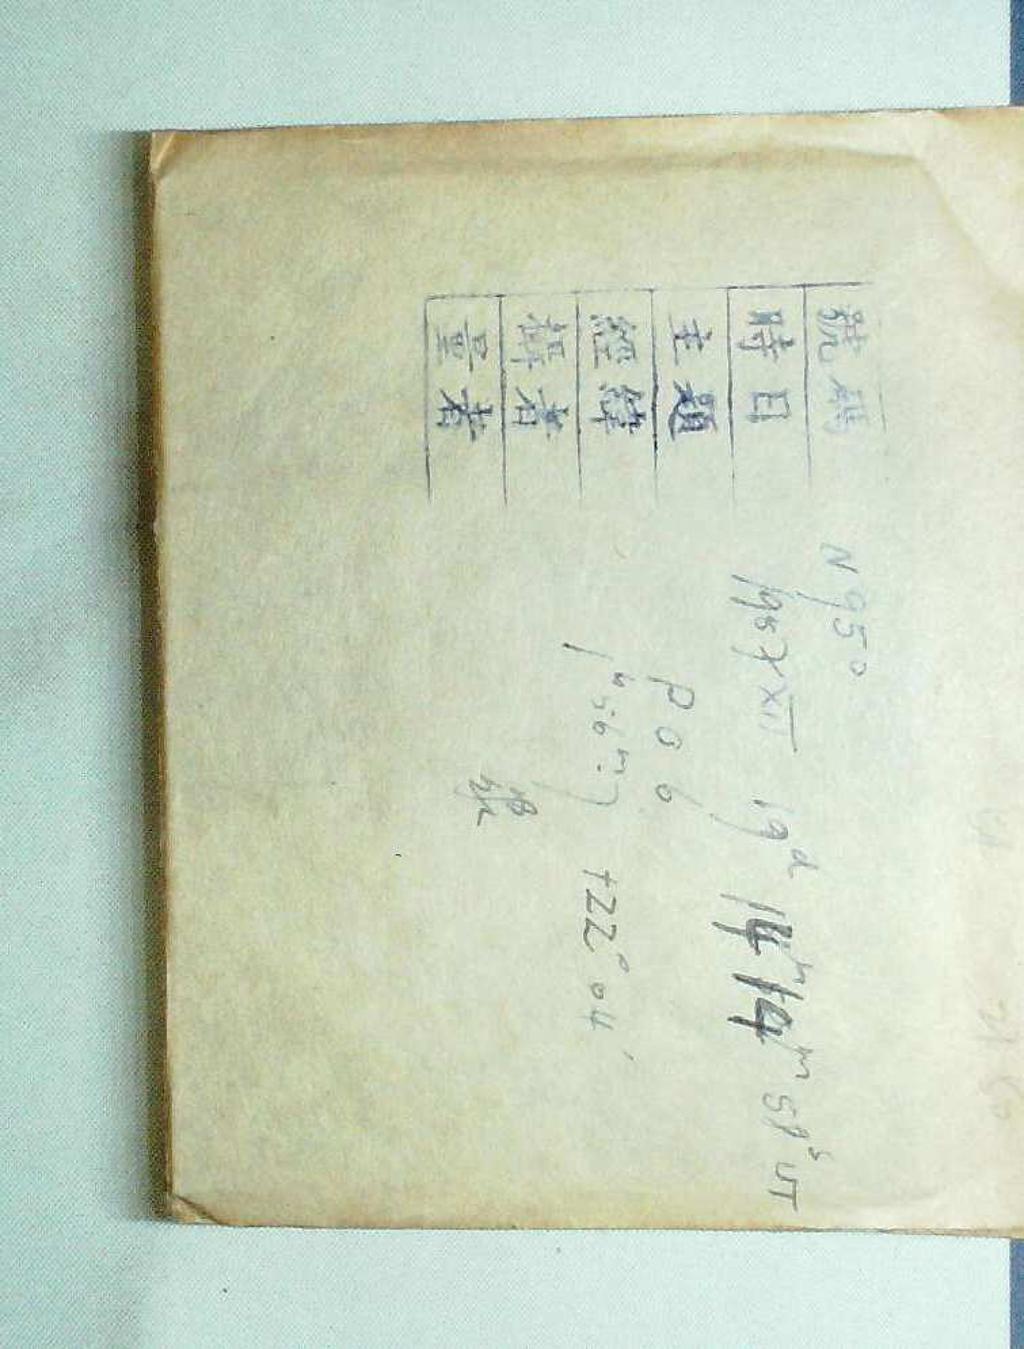 號碼 N950
時日 195 XII 19d 14h 14m 58s UT
主題 P06
經緯 1h 56m.7 +22° 04′
攝者 張
量者